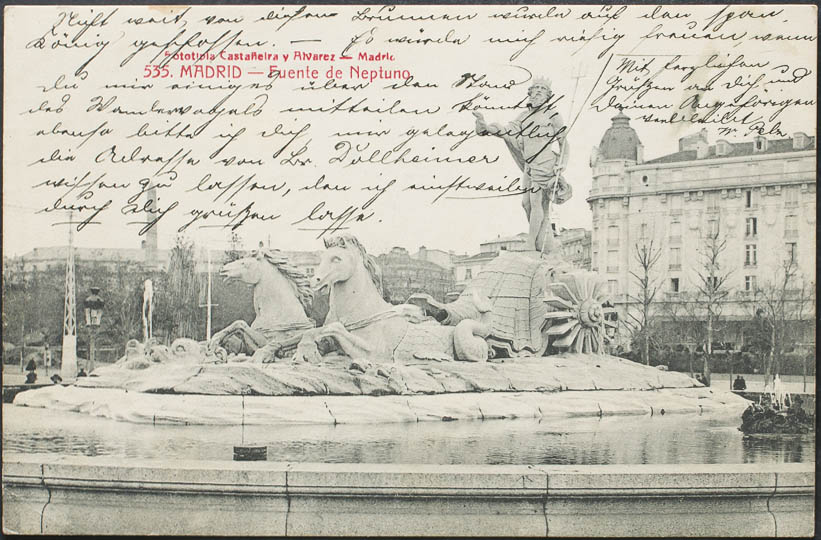 Nicht weit, von diesem Brunnen wurde auf den span.
König geschossen. — Es würde mich riesig freuen wenn
Fototipia Castañeira y Alvarez — Madrid
535. MADRID — Fuente de Neptuno
du mir einiges über den Stand
des Wandervogels mitteilen könntest,
ebenso bitte ich dich mir gelegentlich
die Adresse von Br. Dollheimer
wissen zu lassen, den ich einstweilen
durch Dich grüßen lasse.
Mit herzlichen
Grüßen an dich und
Deinen Angehörigen
verbleibt
W.